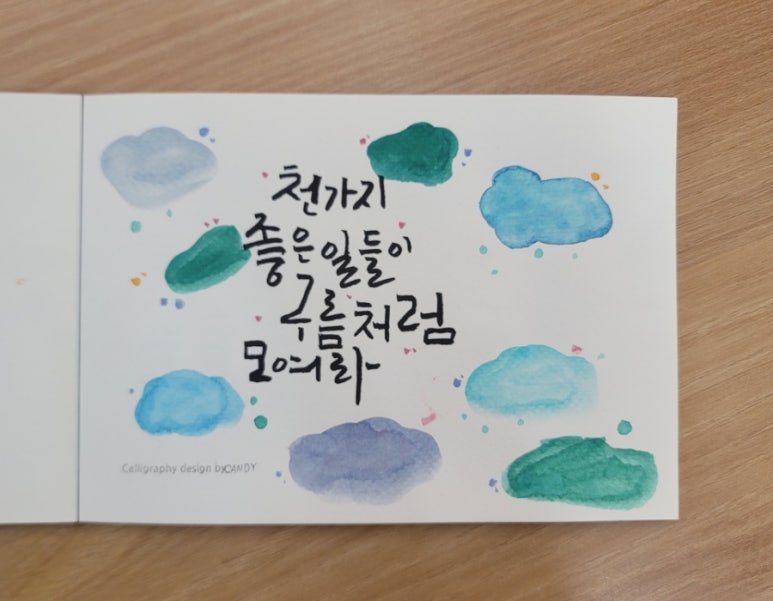 천가지
좋은일들이
구름처럼
모여라
Calligraphy design by CANDY